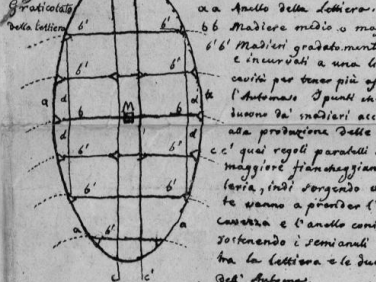 Graticolato
della Lettiera
a a Anello della Lettiera.
b b Madiere medio o ma
b' b' Madieri gradatament
e incurvati a una l
cavità per tener più a
l'Automa
I punti ch
da' madieri acc
produzione delle
c c' quei regoli paralelli
maggiore fiancheggian
leria, indi sorgendo
te vanno a prender l'
e l'anello cont
sostenendo i semianuli
tra la lettiera e le du
dell' Automa
b' b'
b' b'
a d d
M
b b
d d
b' b'
b' b'
a b' a
c c'